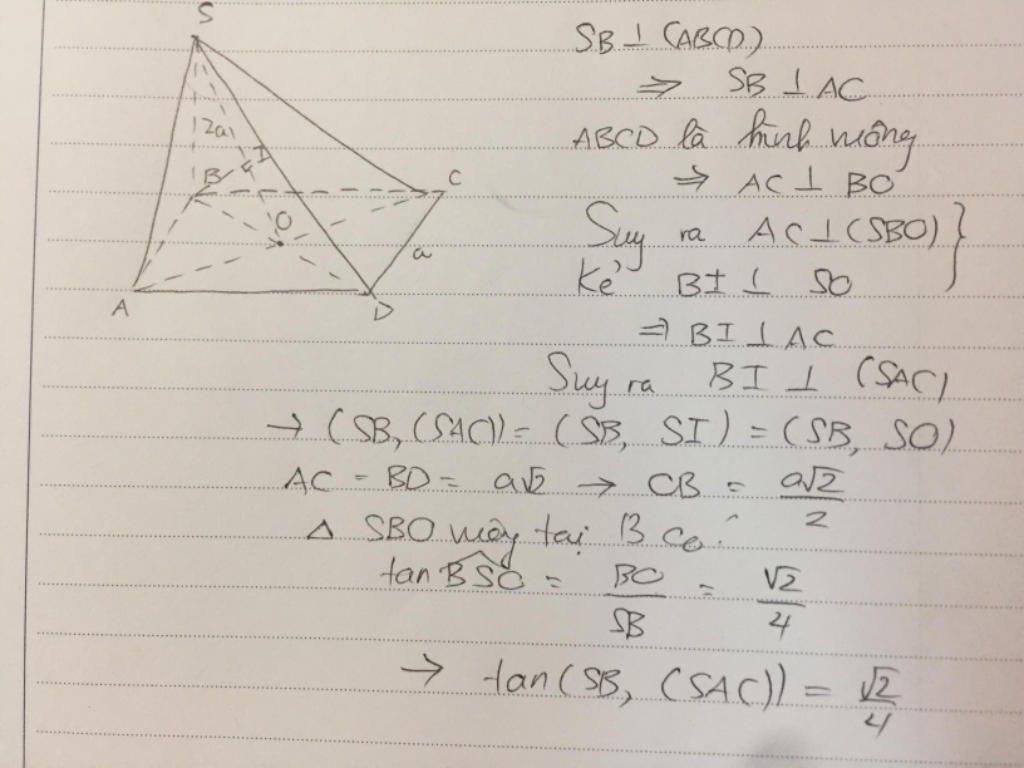 S
2a
B
I
C
O
a
A
D
SB ⊥ (ABCD)
⇒ SB ⊥ AC
ABCD là hình vuông
⇒ AC ⊥ BO
Suy ra AC ⊥ (SBO) }
Kẻ BI ⊥ SO
⇒ BI ⊥ AC
Suy ra BI ⊥ (SAC)
→ (SB, (SAC)) = (SB, SI) = (SB, SO)
AC = BD = a√2 → OB = a√2/2
Δ SBO vuông tại B có:
tan BSO = BO/SB = √2/4
→ tan(SB, (SAC)) = √2/4